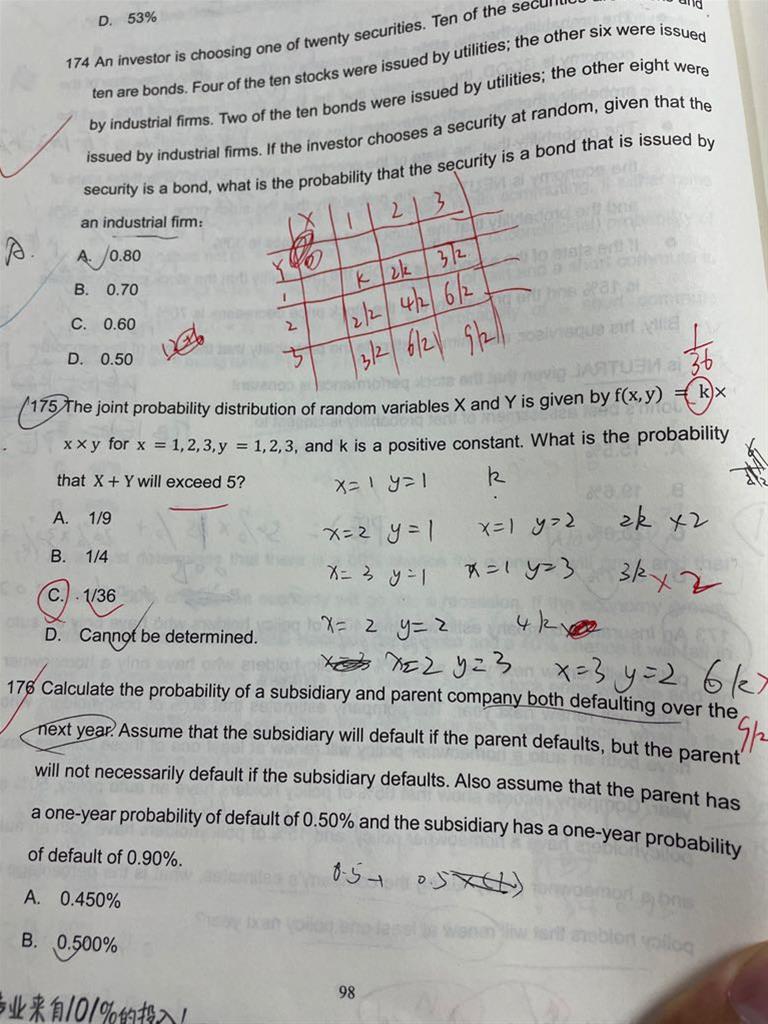 D. 53%
174 An investor is choosing one of twenty securities. Ten of the and
ten are bonds. Four of the ten stocks were issued by utilities; the other six were issued
by industrial firms. Two of the ten bonds were issued by utilities; the other eight were
issued by industrial firms. If the investor chooses a security at random, given that the
security is a bond, what is the probability that the security is a bond that is issued by
an industrial firm:
A.
A. 0.80
B. 0.70
C. 0.60
D. 0.50
X 1 2 3
Y
1 k 2k 3k
2 2k 4k 6k
3 3k 6k 9k
1/36
175 The joint probability distribution of random variables X and Y is given by f(x,y) = k×
x×y for x = 1,2,3,y = 1,2,3, and k is a positive constant. What is the probability
that X+Y will exceed 5?
x=1 y=1 k
A. 1/9
x=2 y=1 x=1 y=2 2k ×2
B. 1/4
x=3 y=1 x=1 y=3 3k ×2
C. 1/36
x=2 y=2 4k
D. Cannot be determined.
x=2 y=3 x=3 y=2 6k×
9k
176 Calculate the probability of a subsidiary and parent company both defaulting over the
next year. Assume that the subsidiary will default if the parent defaults, but the parent
will not necessarily default if the subsidiary defaults. Also assume that the parent has
a one-year probability of default of 0.50% and the subsidiary has a one-year probability
of default of 0.90%.
0.5+ 0.5
A. 0.450%
B. 0.500%
98
业来自101%的投入!